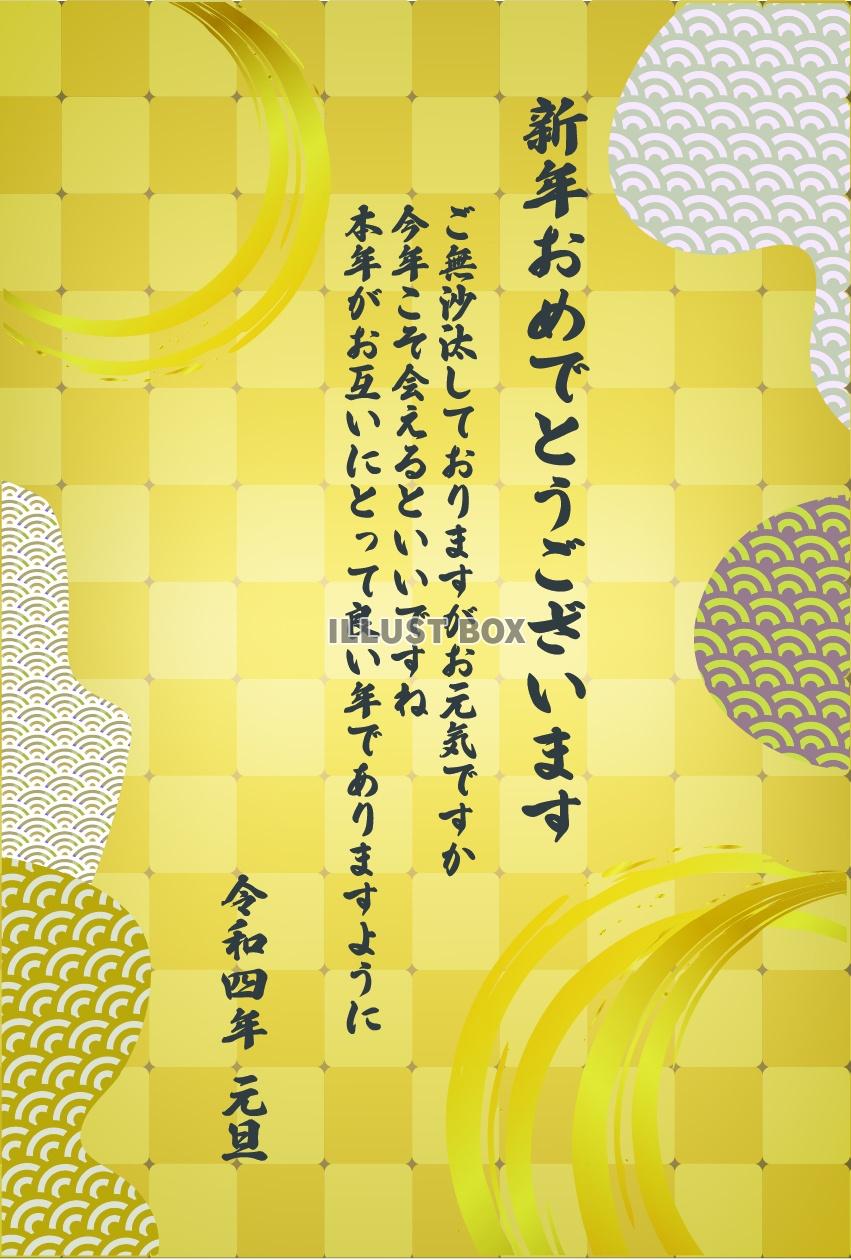 新年おめでとうございます
ご無沙汰しておりますがお元気ですか
今年こそ会えるといいですね
本年がお互いにとって良い年でありますように
令和四年 元旦
ILLUST BOX